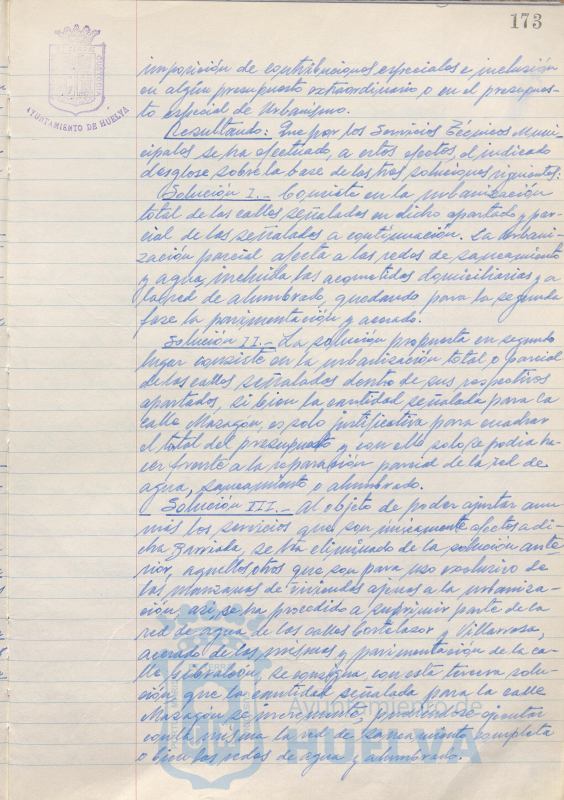 173
AYUNTAMIENTO DE HUELVA
imposición de contribuciones especiales e inclusión
en algún presupuesto extraordinario o en el presupues-
to especial de Urbanismo.
Resultando: Que por los Servicios Técnicos Muni-
cipales se ha efectuado, a estos efectos, el indicado
desglose sobre la base de las tres soluciones siguientes:
Solución I.- Consiste en la urbanización
total de las calles señaladas en dicho apartado y par-
cial de las señaladas a continuación. La urbani-
zación parcial afecta a las redes de saneamiento
y agua, incluida las acometidas domiciliarias y a
la red de alumbrado, quedando para la segunda
fase la pavimentación y acerado.
Solución II.- La solución propuesta en segundo
lugar consiste en la urbanización total o parcial
de las calles señaladas dentro de sus respectivos
apartados, si bien la cantidad señalada para la
calle Mazagón, es solo justificativa para cuadrar
el total del presupuesto y con ello solo se podía ha-
cer frente a la reparación parcial de la red de
agua, saneamiento o alumbrado.
Solución III.- Al objeto de poder ajustar aun
más los servicios que son únicamente afectos a di-
cha Barriada, se ha eliminado de la solución ante-
rior, aquellos otros que son para uso exclusivo de
las manzanas de viviendas ajenas a la urbaniza-
ción, así, se ha procedido a suprimir parte de la
red de agua de las calles Cortelazor y Villarrasa,
acerado de las mismas y pavimentación de la ca-
lle Gibraleón, se consigna, con esta tercera solu-
ción que la cantidad señalada para la calle
Mazagón se incremente, pudiéndose ejecutar
con la misma la red de saneamiento completa
o bien las redes de agua y alumbrado.
Ayuntamiento de
HUELVA